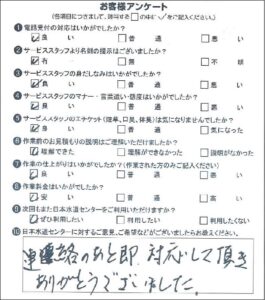 お客様アンケート
(各項目につきまして、該当する□の中に✓をご記入ください。)
❶ 電話受付の対応はいかがでしたか?
☑良い □普通 □悪い
❷ サービススタッフより名刺の提示はございましたか?
☑有 □無 □不明
❸ サービススタッフの身だしなみはいかがでしたか?
☑良い □普通 □悪い
❹ サービススタッフのマナー・言葉遣い・態度はいかがでしたか?
☑良い □普通 □悪い
❺ サービススタッフのエチケット(煙草、口臭、体臭)は気になりましたか?
☑良い □普通 □気になった
❻ 作業前のお見積もりの説明はご理解いただけましたか?
☑理解できた □理解ができなかった □説明がなかった
❼ 作業の仕上がりはいかがでしたか?(作業された方のみご記入ください)
☑良い □普通 □悪い
❽ 作業料金はいかがでしたか?
☑安い □普通 □高い
❾ 次回もまた日本水道センターをご利用いただけますか?
☑ぜひ利用したい □利用したい □利用したくない
❿ 日本水道センターに対するご意見、ご希望などがございましたらお教えください。
連絡のあと即、対応して頂き
ありがとうございました。